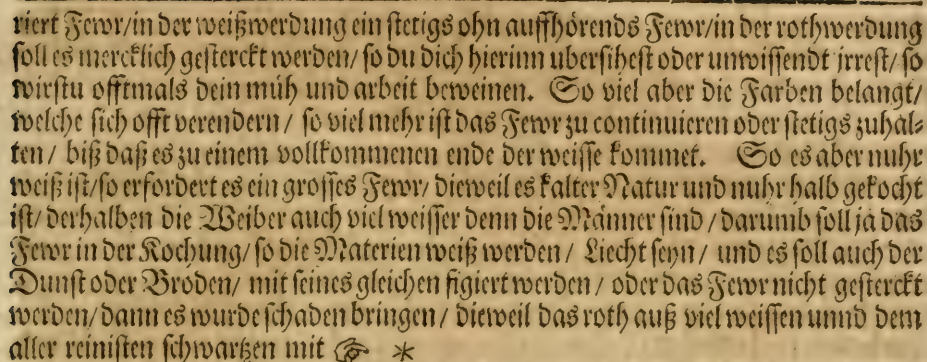 riert Fewr/in der weißwerdung ein stetigs ohn auffhörends Fewr/in der rothwerdung
soll es mercklich gesterckt werden/ so du dich hierinn ubersihest oder unwissendt jrrest/ so
wirstu offtmals dein müh und arbeit beweinen. So viel aber die Farben belangt/
welche sich offt verendern / so viel mehr ist das Fewr zu continuieren oder stetigs zuhal⸗
ten / biß daß es zu einem vollkommenen ende der weisse kommet. So es aber nuhr
weiß ist/so erfordert es ein grosses Fewr/ dieweil es kalter Natur und nuhr halb gekocht
ist/ derhalben die Weiber auch viel weisser denn die Männer sind / darumb soll ja das
Fewr in der Kochung/ so die Materien weiß werden / Liecht seyn / und es soll auch der
Dunst oder Broden/ mit seines gleichen figiert werden / oder das Fewr nicht gesterckt
werden/dann es wurde schaden bringen / dieweil das roth auß viel weissen unnd dem
aller reinisten schwartzen mit ☞ *